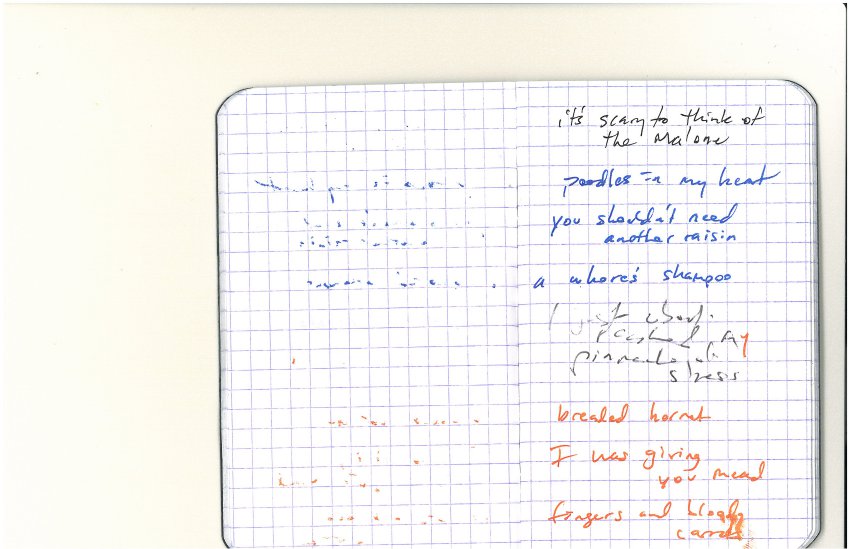 it's scary to think of
the Malone
poodles in my heart
you shouldn't need
another raisin
a whore's shampoo
I just about
reached my
pinnacle of
stress
breaded hornet
I was giving
you mead
fingers and bloody
carrots